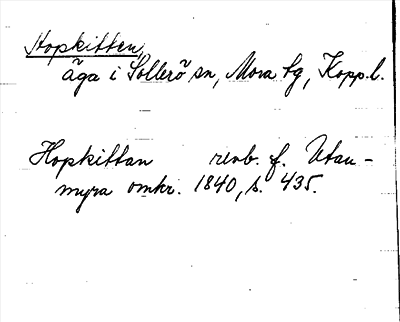 Hopkitten,
äga i Sollerö sn, Mora tg, Kopp. l.
Hopkittan renb. f. Utan-
myra omkr. 1840, s. 435.